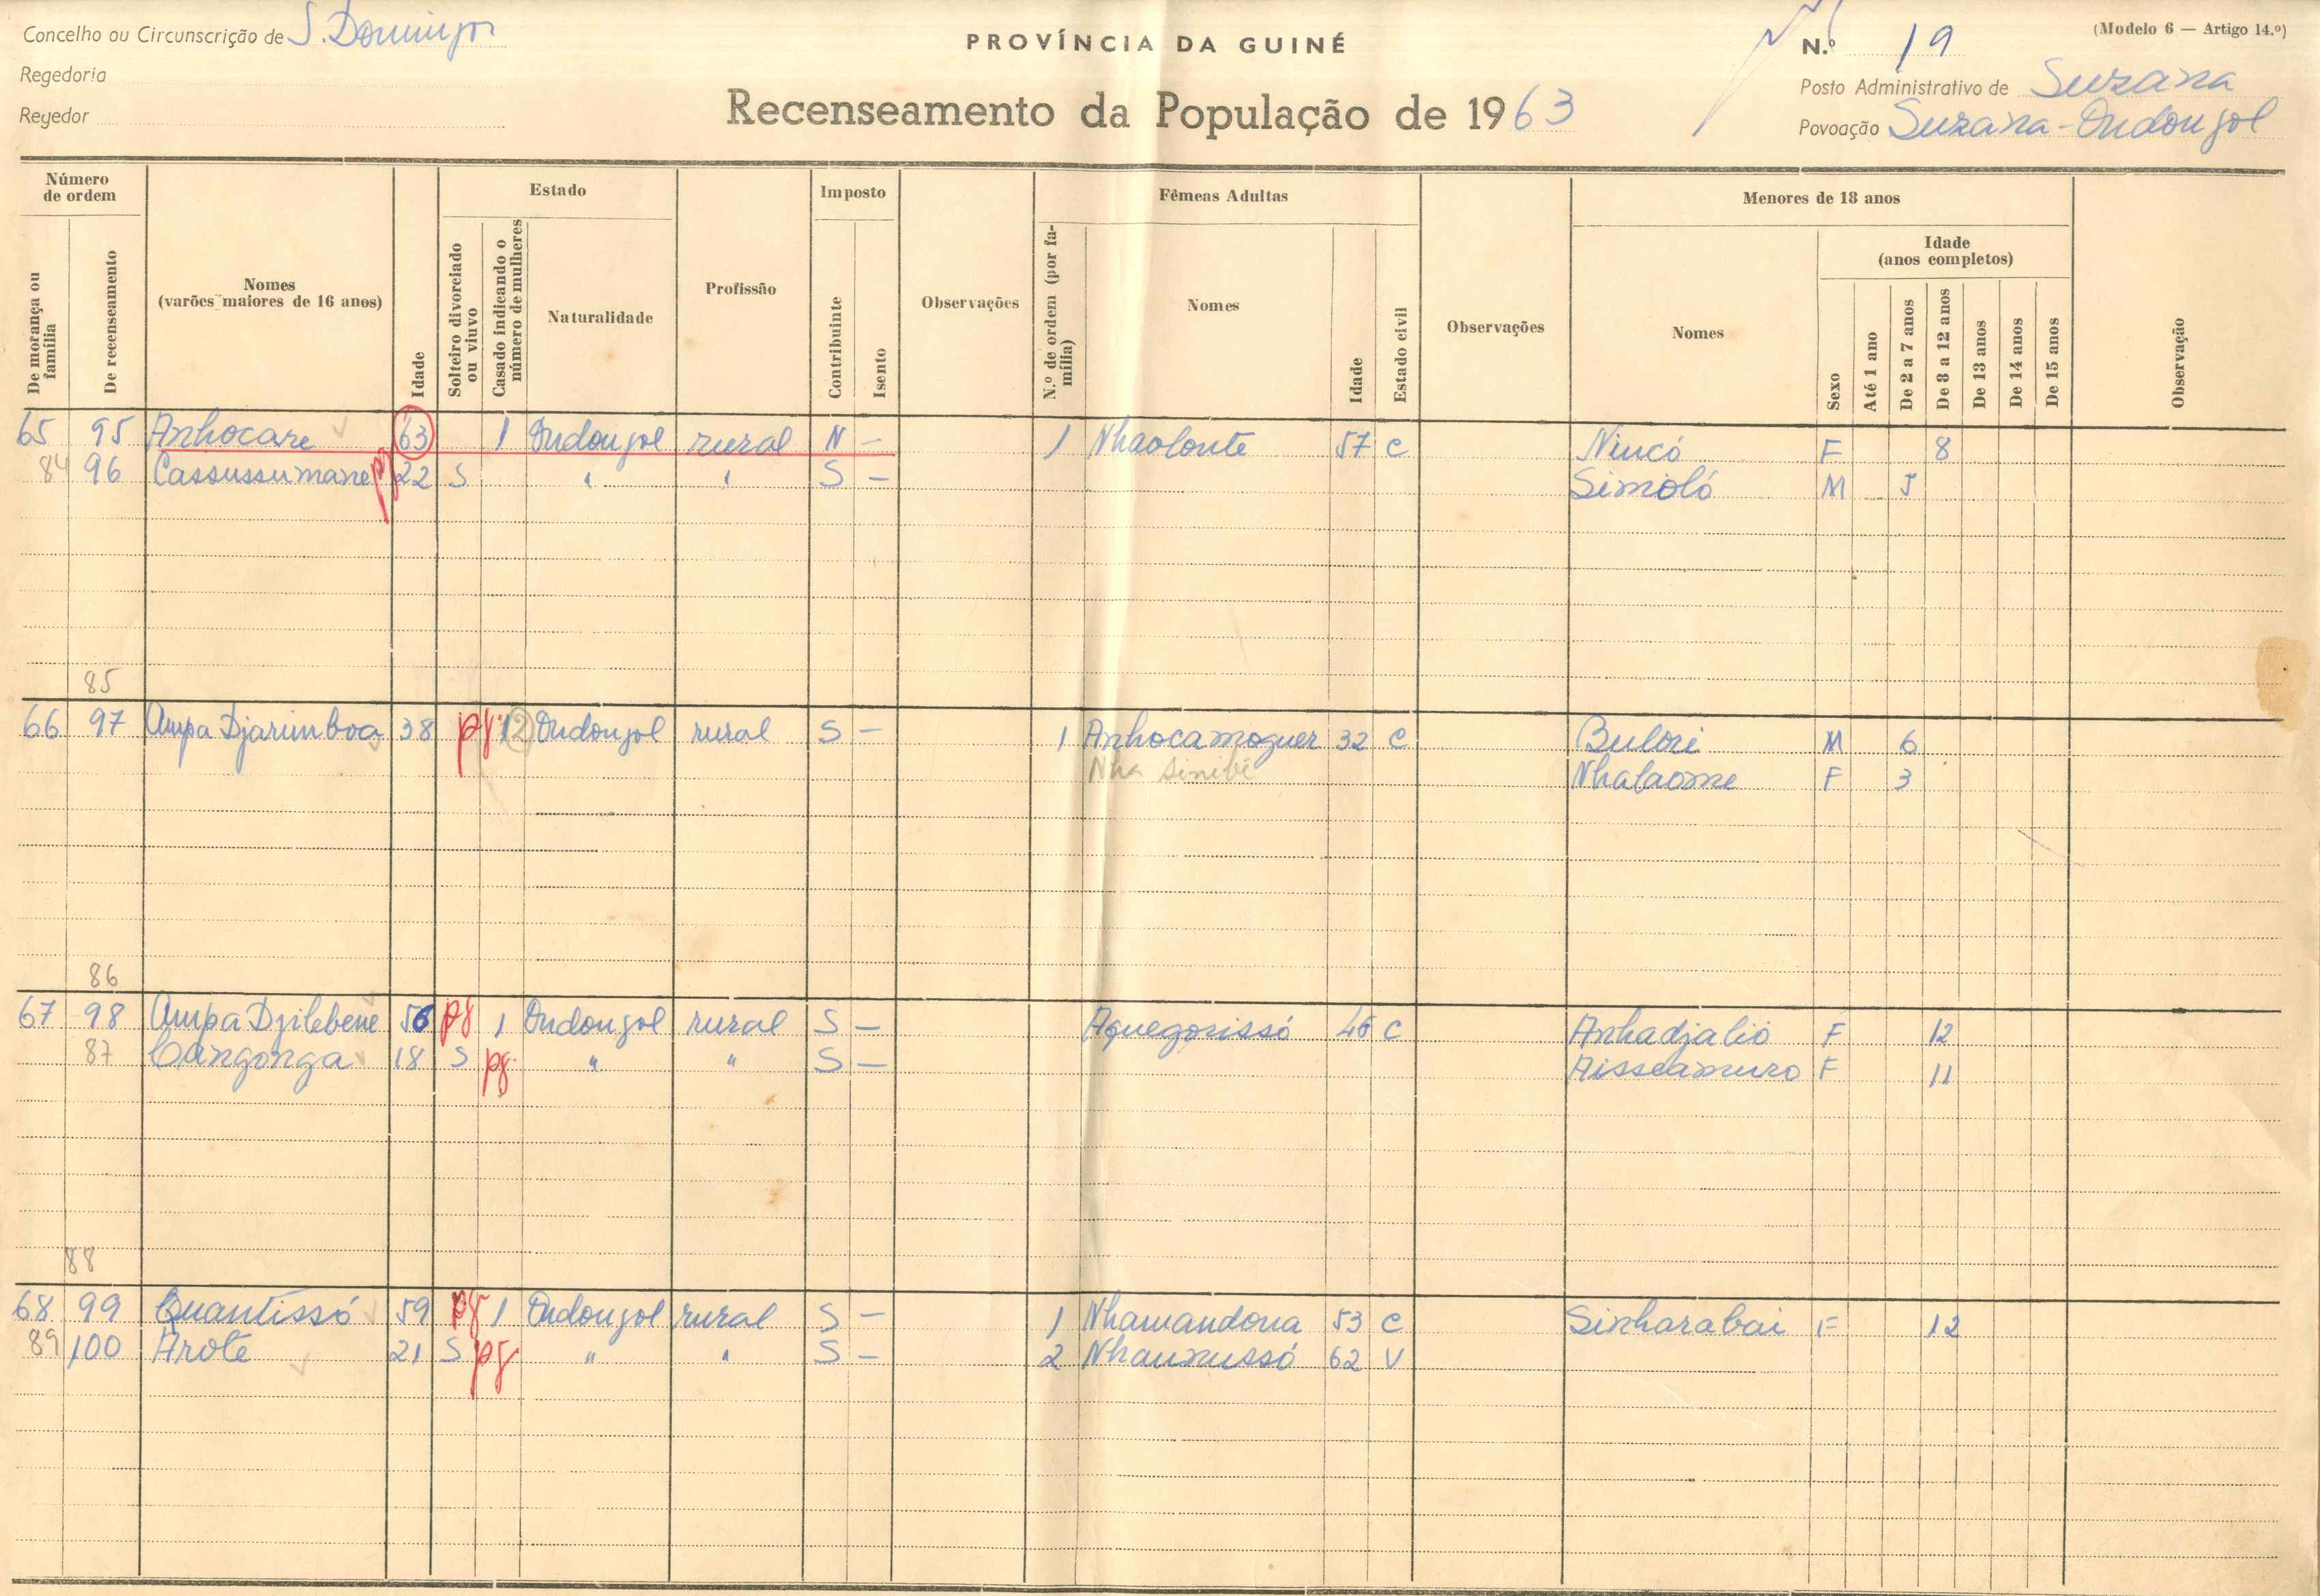 Concelho ou Circunscrição de S. Domingos
PROVÍNCIA DA GUINÉ
N.º 19
(Modelo 6 — Artigo 14.º)
Regedoria
Posto Administrativo de Suzana
Regedor
Recenseamento da População de 1963
Povoação Suzana-Ondongol
Número de ordem
Estado
Imposto
Fêmeas Adultas
Menores de 18 anos
De morança ou família
De recenseamento
Nomes (varões maiores de 16 anos)
Idade
Solteiro divorciado ou viuvo
Casado indicando o número de mulheres
Naturalidade
Profissão
Contribuinte
Isento
Observações
N.º de ordem (por família)
Nomes
Idade
Estado civil
Observações
Nomes
Sexo
Idade (anos completos)
Até 1 ano
De 2 a 7 anos
De 8 a 12 anos
De 13 anos
De 14 anos
De 15 anos
Observação
65 95 Anhocare 63 1 Ondongol rural N — 1 Nhaolonte 57 C Niucó F 8
84 96 Cassussumane pg 22 S " " S — Simoló M 5
85
66 97 Ampa Djarimboa 38 pg 1 2 Ondongol rural S — 1 Anhocamoguer 32 C Bulori M 6
Nha Sinibé Nhalaome F 3
86
67 98 Ampa Djilebene 56 pg 1 Ondongol rural S — Aquegorissó 46 C Anhadjalió F 12
87 Cangonga 18 S pg " " S — Aisseamuro F 11
88
68 99 Quantissó 59 pg 1 Ondongol rural S — 1 Nhamandona 53 C Sinharabai F 12
89 100 Arote 21 S pg " " S — 2 Nhaunussó 62 V